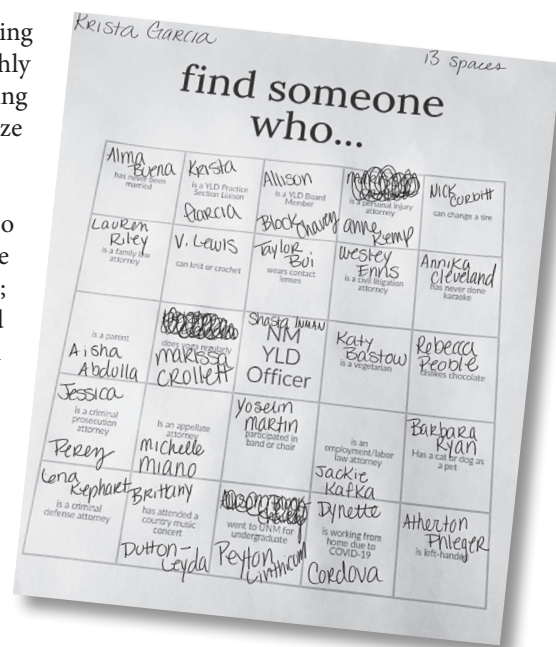 ing
hly
ing
ze
o
e
;
d
KRISTA GARCIA
13 spaces
find someone
who...
Alma
Buena
has never been
married
Krista
is a YLD Practice
Section Liaison
Garcia
Allison
is a YLD Board
Member
Block Chavez
is a personal injury
attorney
anne Kemp
NICK
can change a tire
Lauren
Riley
is a family law
attorney
V. Lewis
can knit or crochet
Taylor
Bui
wears contact
lenses
Westley
Enns
is a civil litigation
attorney
Annika
Cleveland
has never done
karaoke
is a parent
Aisha
Abdulla
does yoga regularly
marissa
CROLLETT
Shasta INMAN
NM
YLD
Officer
Katy
Bastow
is a vegetarian
Rebecca
People
dislikes chocolate
Jessica
is a criminal
prosecution
attorney
Perez
Is an appellate
attorney
michelle
miano
Yoselin
martin
participated in
band or choir
is an
employment/labor
law attorney
Jackie
Kafka
Barbara
Ryan
Has a cat or dog as
a pet
Lena
Rephart
is a criminal
defense attorney
Brittany
has attended a
country music
concert
Dutton-
Leyda
went to UNM for
undergraduate
Peyton
Dynette
is working from
home due to
COVID-19
Cordova
Atherton
Phleger
is left-handed